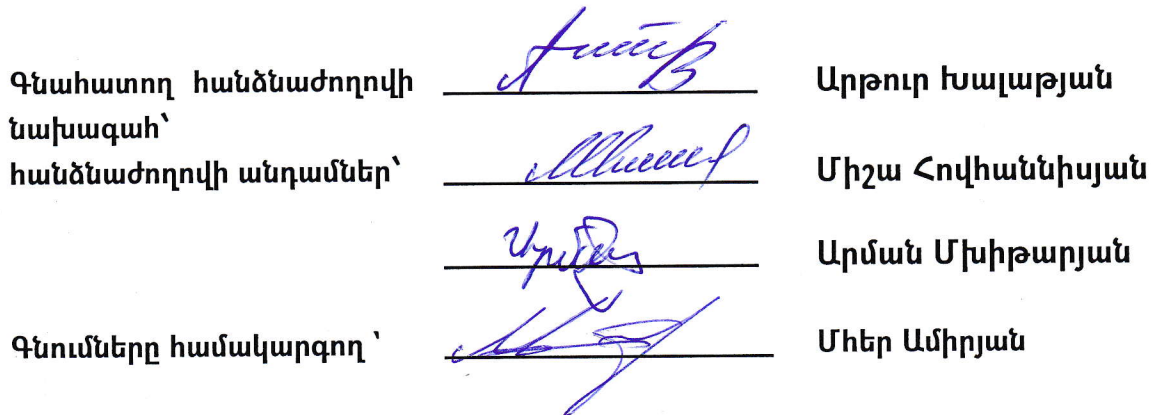 Գնահատող հանձնաժողովի
նախագահ՝
Արթուր Խալաթյան
հանձնաժողովի անդամներ՝
Միշա Հովհաննիսյան
Արման Մխիթարյան
Գնումները համակարգող ՝
Մհեր Ամիրյան